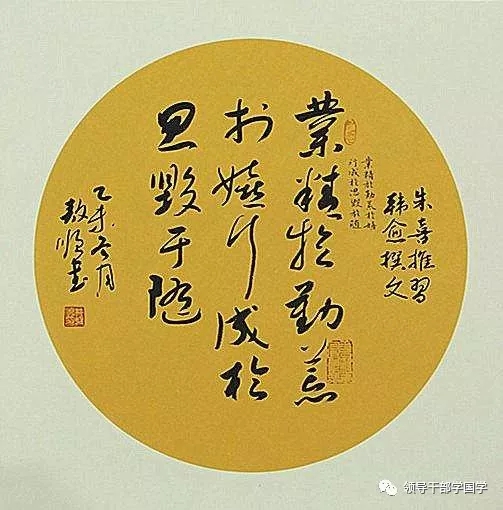 朱喜推習
韩愈撰文
業精於勤荒於嬉
行成於思毀於随
業精於勤荒
於嬉行成於
思毀于随
乙未冬月
领导干部学国学